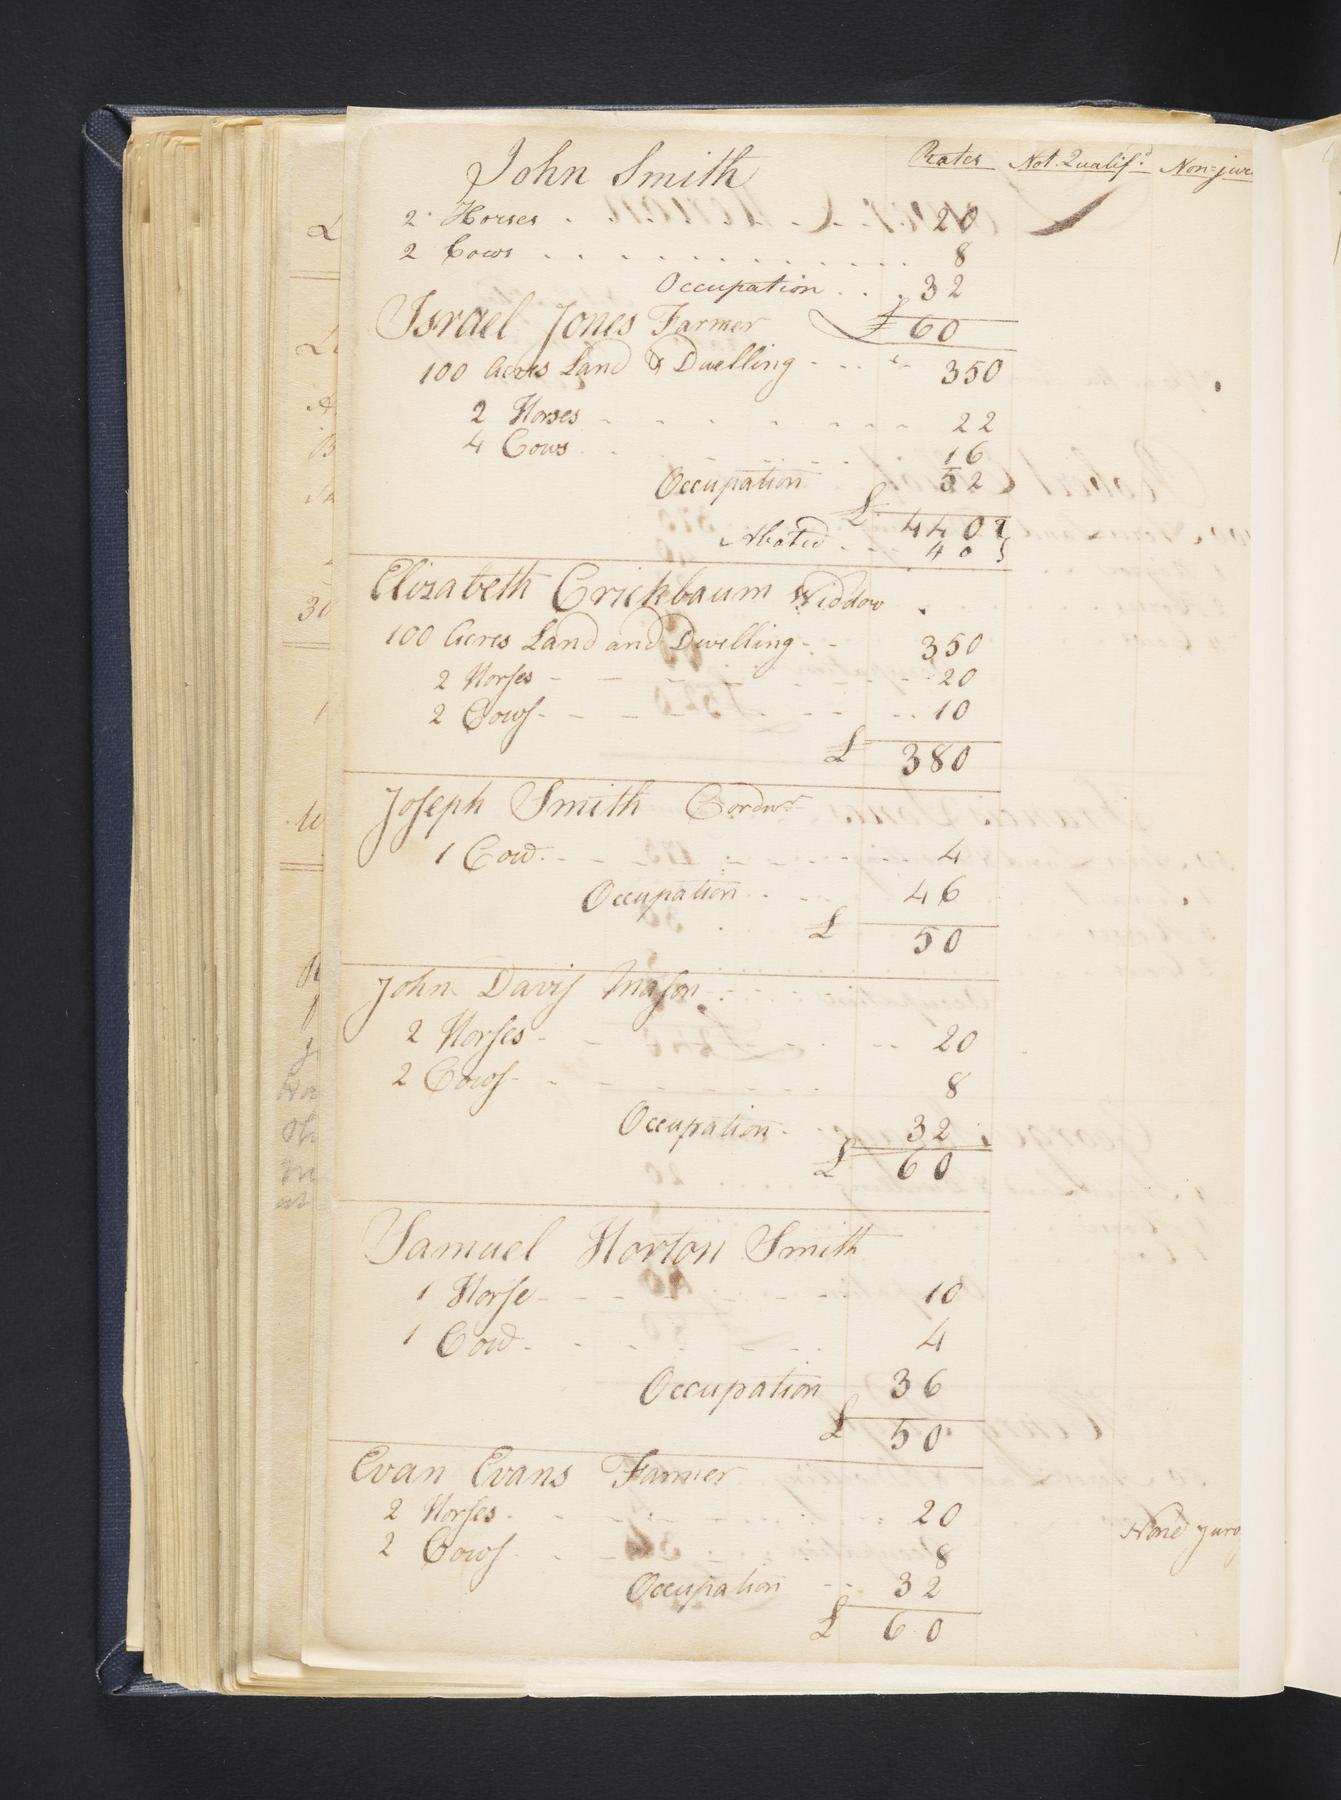 Rates Not Qualif.d Non=jur
John Smith
2 Horses 20
2 Cows 8
Occupation 32
£ 60
Israel Jones Farmer
100 Acres Land & Dwelling 350
2 Horses 22
4 Cows 16
Occupation 52
£ 440
Abated 40
Elizabeth Crickbaum Widdow
100 Acres Land and Dwelling 350
2 Horses 20
2 Cows 10
£ 380
Joseph Smith Cordwr
1 Cow 4
Occupation 46
£ 50
John Davis Mason
2 Horses 20
2 Cows 8
Occupation 32
£ 60
Samuel Horton Smith
1 Horse 10
1 Cow 4
Occupation 36
£ 50
Evan Evans Farmer
2 Horses 20
None juro
2 Cows 8
Occupation 32
£ 60